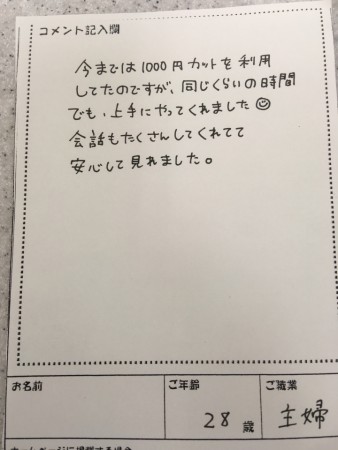 コメント記入欄
今までは1000円カットを利用
してたのですが、同じくらいの時間
でも、上手にやってくれました☺
会話もたくさんしてくれてて
安心して見れました。
お名前
ご年齢
ご職業
28歳
主婦